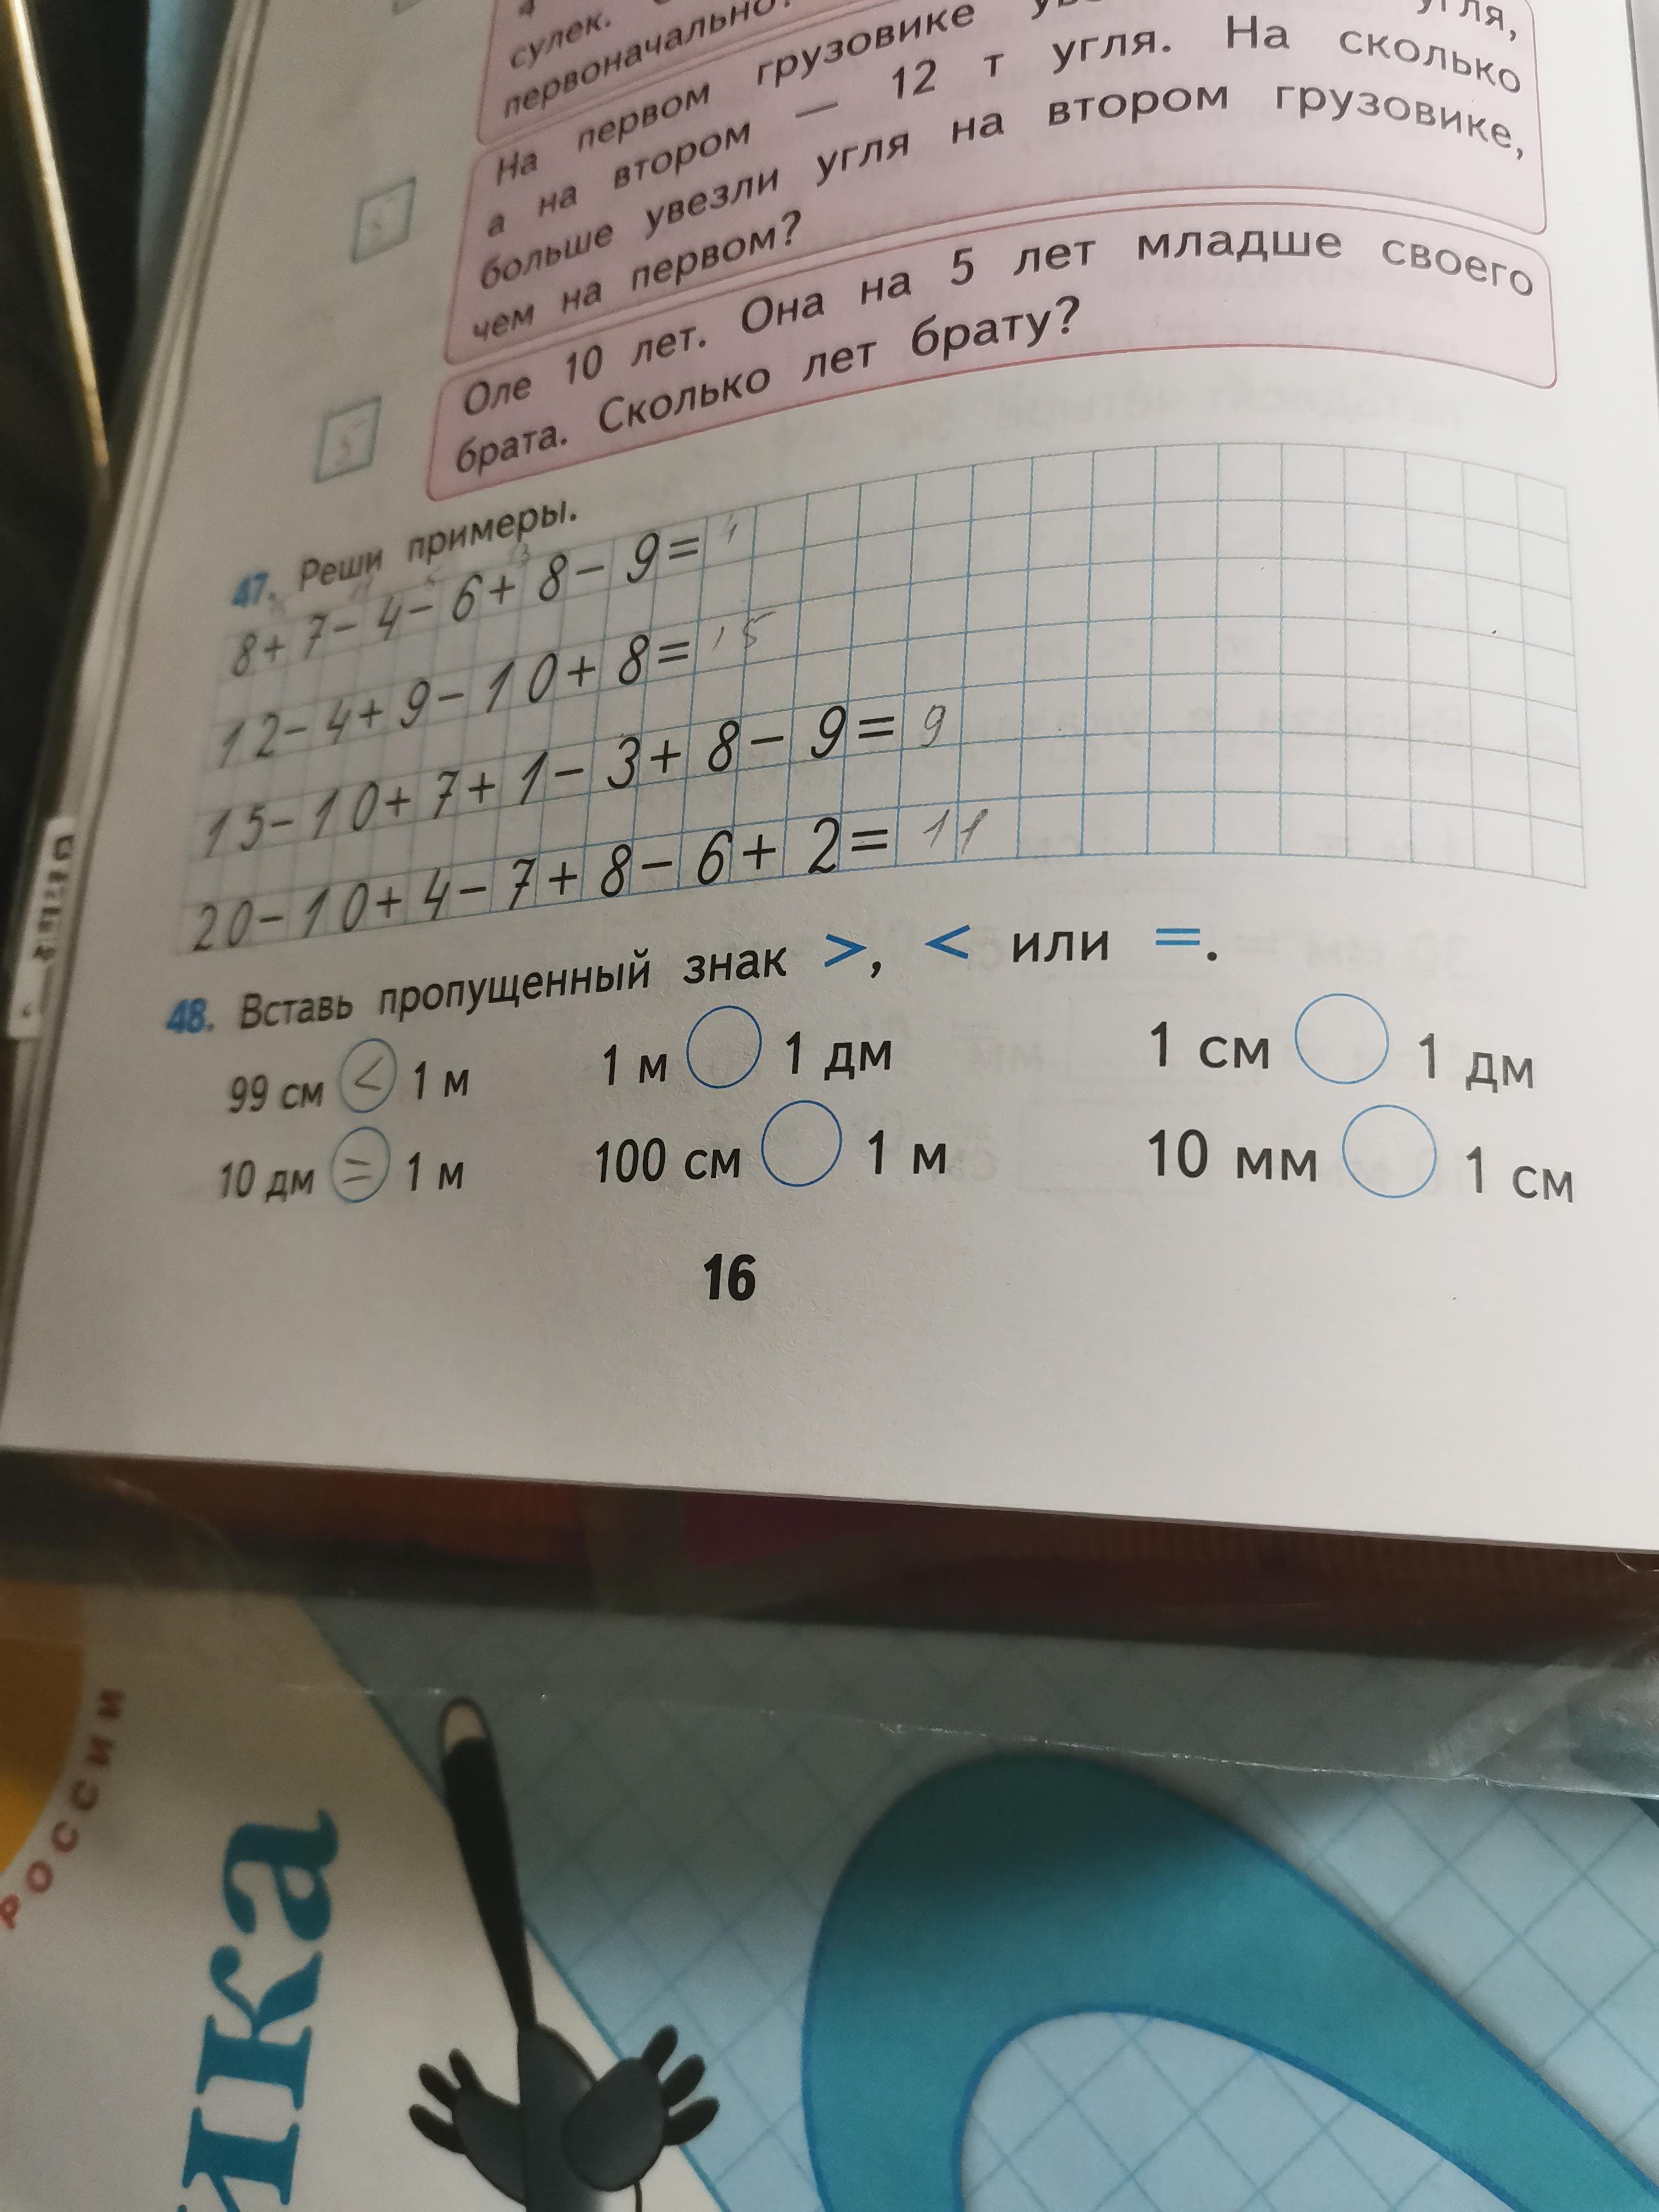 сулек.
первоначально?
На первом грузовике
а на втором — 12 т угля. На сколько
больше увезли угля на втором грузовике,
чем на первом?
Оле 10 лет. Она на 5 лет младше своего
брата. Сколько лет брату?
5
47. Реши примеры.
8+7-4-6+8-9=
12-4+9-10+8= 15
15-10+7+1-3+8-9= 9
20-10+4-7+8-6+2= 11
48. Вставь пропущенный знак >, < или =.
99 см < 1 м 1 м 1 дм 1 см 1 дм
10 дм = 1 м 100 см 1 м 10 мм 1 см
16
РОССИИ
ика